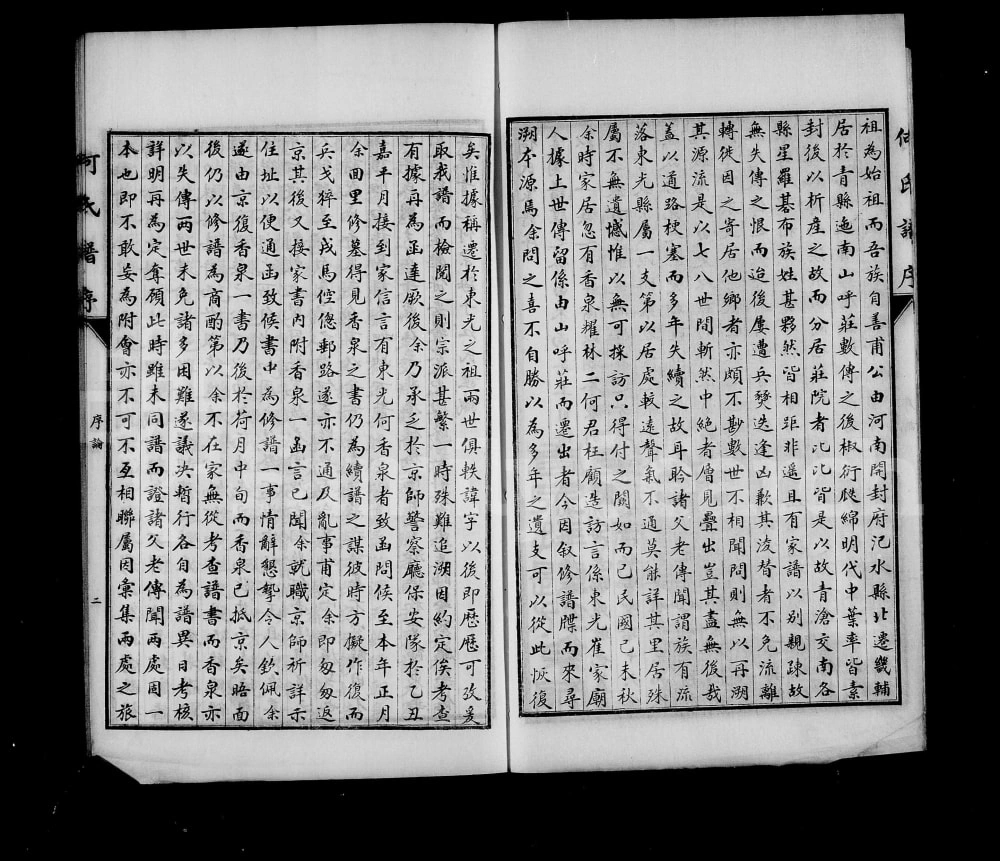 何氏譜 序
祖為始祖而吾族自善甫公由河南開封府汜水縣北遷畿輔
居於青縣迤南山呼莊數傳之後椒衍瓞綿明代中葉率皆素
封後以析產之故而分居莊院者比比皆是以故青滄交南各
縣星羅碁布族姓甚夥然皆相距非遥且有家譜以別親疎故
無失傳之恨而迨後屢遭兵燹迭逢凶歉其淩替者不免流離
轉徙因之寄居他鄉者亦頗不尠數世不相聞問則無以再溯
其源流是以七八世間斬然中絕者層見疊出豈其盡無後哉
蓋以道路梗塞而多年失續之故耳聆諸父老傳聞謂族有流
落東光縣屬一支第以居處較遠聲氣不通莫能詳其里居殊
屬不無遺憾惟以無可採訪只得付之闕如而已民國己未秋
余時家居忽有香泉耀林二何君枉顧造訪言係東光崔家廟
人據上世傳留係由山呼莊而遷出者今因叙修譜牒而來尋
溯本源焉余聞之喜不自勝以為多年之遺支可以從此恢復
矣惟據稱遷於東光之祖兩世俱軼諱字以後即歷歷可攷爰
取我譜而檢閱之則宗派甚繁一時殊難追溯因約定俟考查
有據再為函達厥後余乃承乏於京師警察廳保安隊於乙丑
嘉平月接到家信言有東光何香泉者致函問候至本年正月
余回里修墓得見香泉之書仍為續譜之謀彼時方擬作復而
兵戈猝至戎馬倥傯郵路遂亦不通及亂事甫定余即匆匆返
京其後又接家書内附香泉一函言已聞余就職京師祈詳示
住址以便通函致候書中為修譜一事情辭懇摯令人欽佩余
遂由京復香泉一書乃後於荷月中旬而香泉已抵京矣晤面
後仍以修譜為商酌第以余不在家無從考查譜書而香泉亦
以失傳兩世未免諸多困難遂議决暫行各自為譜異日考核
詳明再為定奪顧此時雖未同譜而證諸父老傳聞兩處固一
本也即不敢妄為附會亦不可不互相聯屬因彙集兩處之旅
何氏譜 序
序論
二